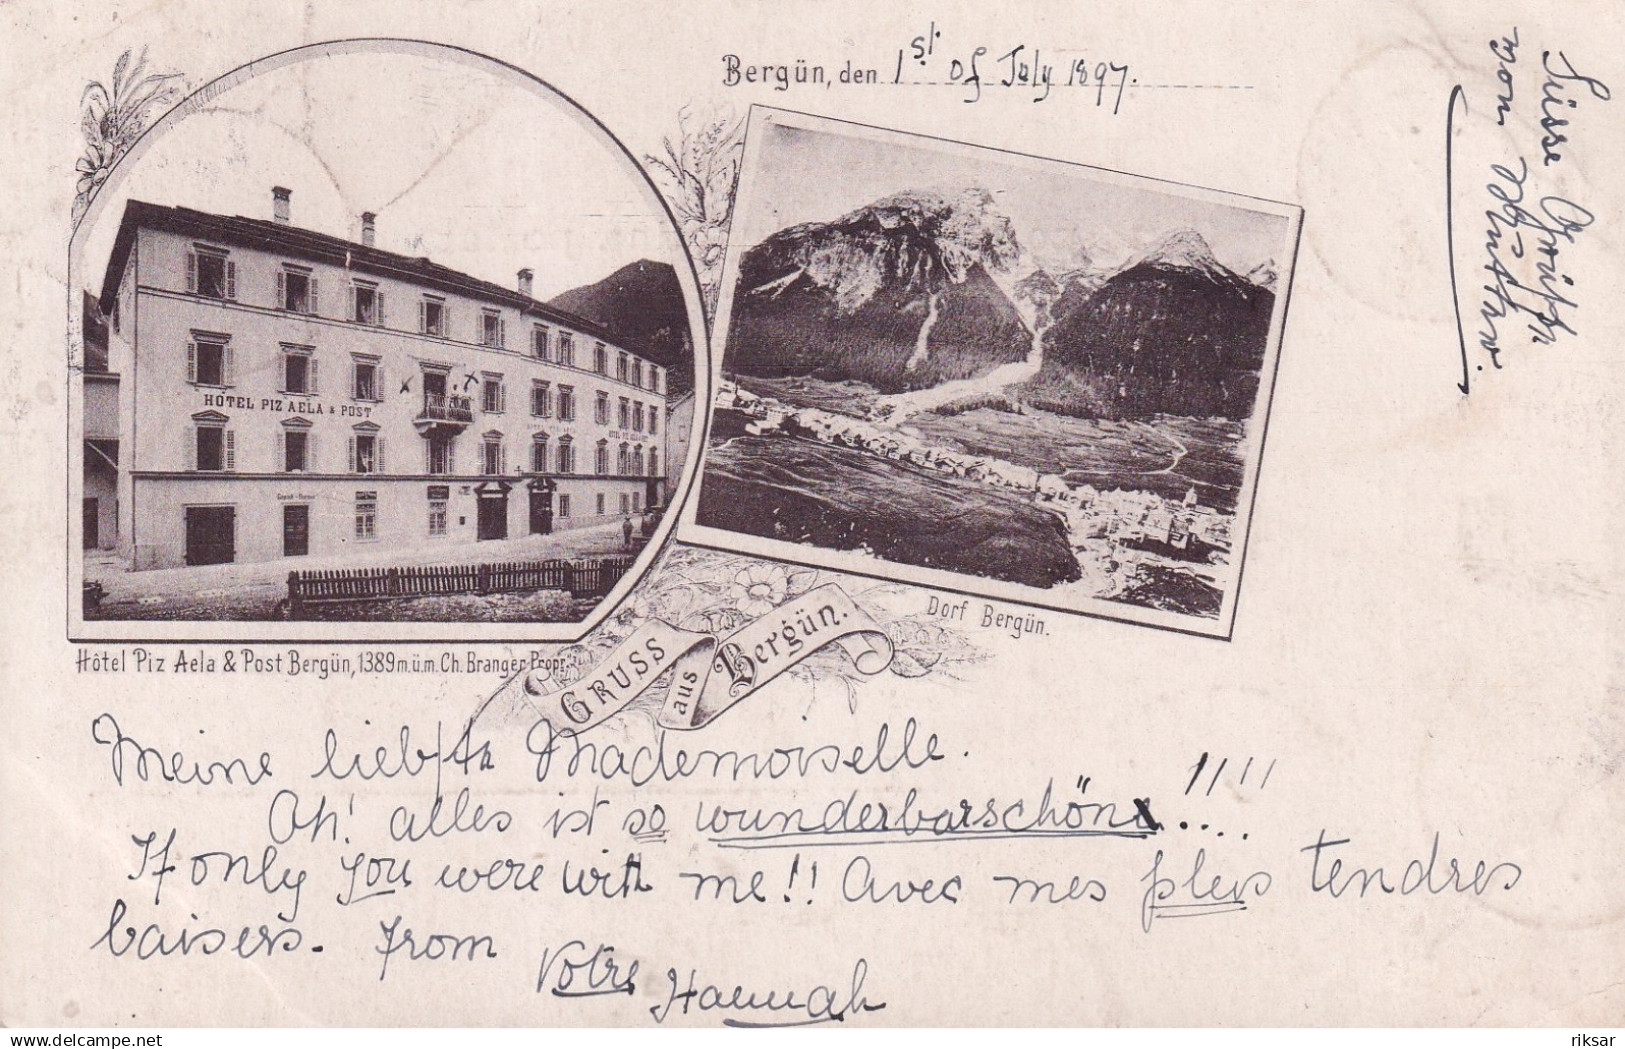 Bergün, den 1st. of July 1897.
HÔTEL PIZ AELA & POST
Dorf Bergün.
Hôtel Piz Aela & Post Bergün, 1389 m.ü.m. Ch. Branger Propr.
GRUSS
aus
Bergün.
Meine liebste Mademoiselle.
Oh! alles ist so wunderbarschön!!!!
If only you were with me!! Avec mes plus tendres
baisers. From
Votre
Hannah
Süsse
von
Delcampe.net
riksar